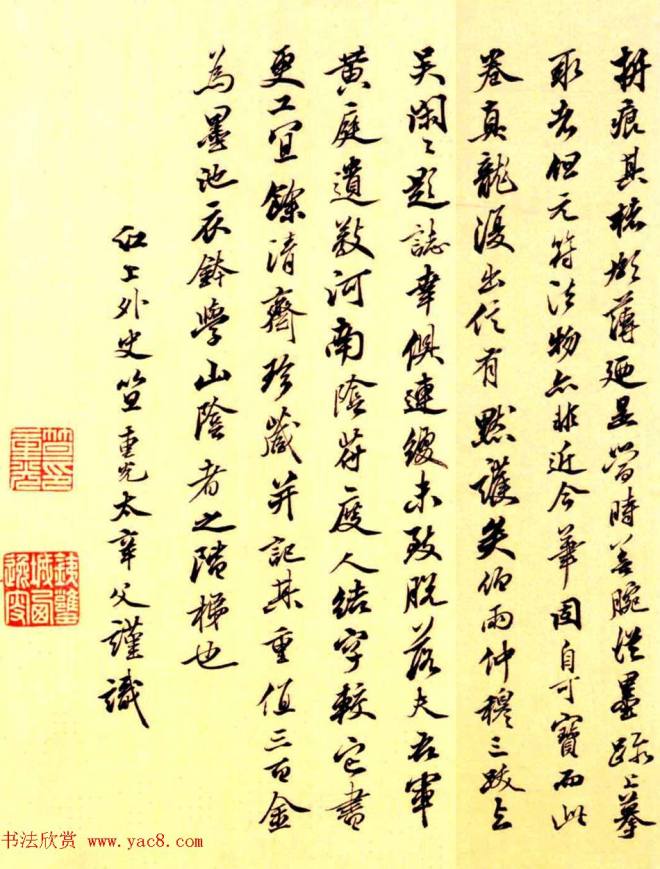 搨痕其秾纖薄廼是當時善腕從墨跡上摹
取者但元符法物亦非近今筆固自可寶而此
卷真龍復出信有默護矣伯雨仲穆三跋与
吴閑〻題誌幸俱連缀未致脱落夫右軍
黄庭遺教河南陰符度人结字較它書
更工宜餘清齋珍藏并記其重值三百金
為墨池衣鉢學山陰者之階梯也
江上外史笪重光太辛父謹識
笪重光印
鐵甕城西逸叟
书法欣赏 www.yac8.com